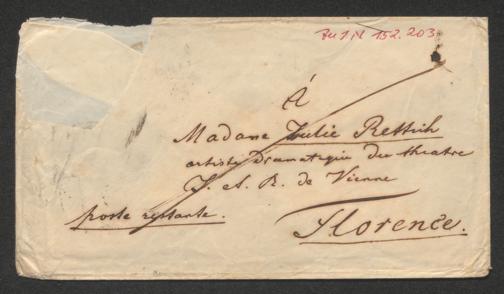 Zu I.N. 152.203
À
Madame Julie Rettich
artiste dramatique du theatre
I. et. R. de Vienne
poste restante.
Florence.